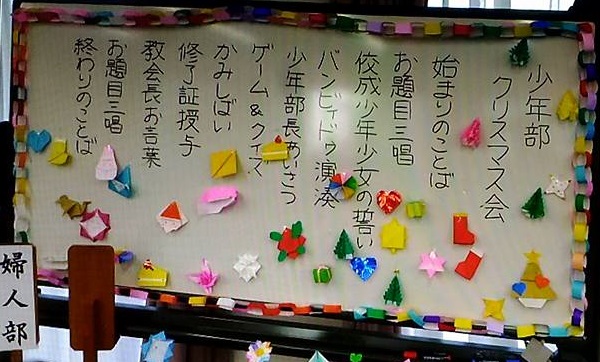 少年部
クリスマス会
始まりのことば
お題目三唱
佼成少年少女の誓い
バンビィドゥ演奏
少年部長あいさつ
ゲーム&クイズ
かみしばい
修了証授与
教会長お言葉
お題目三唱
終わりのことば
婦人部